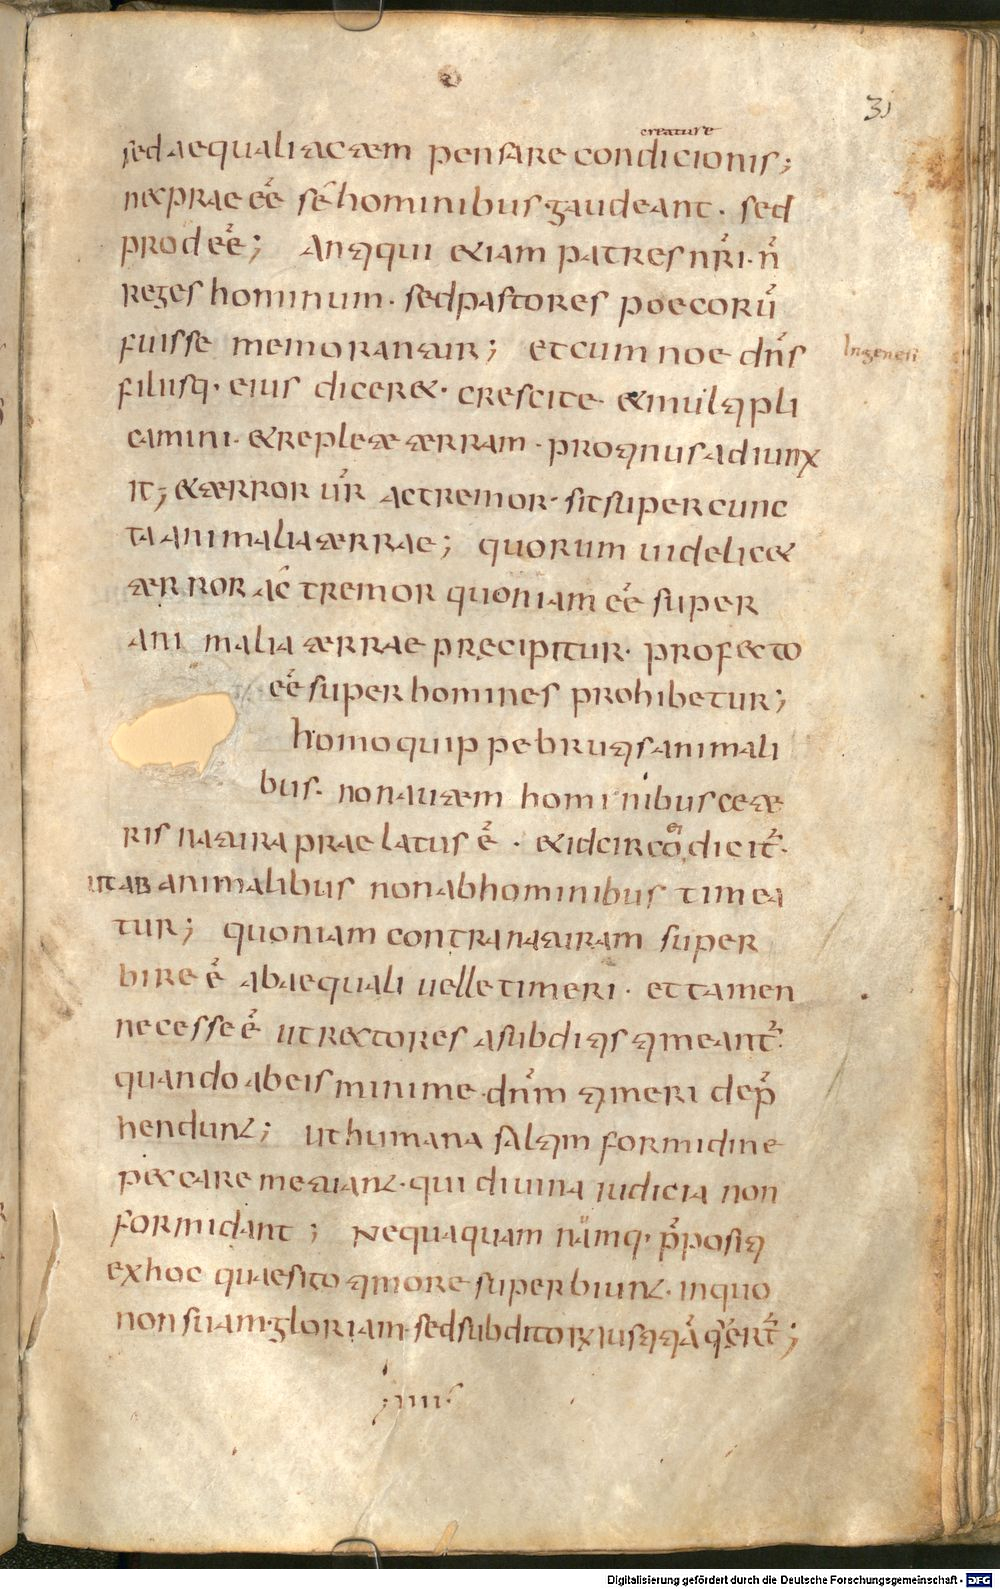 31
creature
sed aequalitatem pensare condicionis;
nec prae eē se hominibus gaudeant · sed
prodeē; Antiqui etiam patres nr̄i · n̄
reges hominum · sed pastores poecorū
fuisse memorantur; et cum noe dn̄s
In genesi
filiisq· eius diceret · crescite et multipli
camini · et replete terram · protinus adiunx
it; et terror ur̄ ac tremor · sit super cunc
ta animalia terrae; quorum uidelicet
terror ac tremor quoniam eē super
animalia terrae precipitur · profecto
eē super homines prohibetur;
homo quippe brutis animali
bus · non autem hominibus cete
ris natura praelatus ē · et idcirco ei dicit̄·
ut ab animalibus non ab hominibus timea
tur; quoniam contra naturam super
bire ē ab aequali uelle timeri · et tamen
necesse ē ut rectores a subditis timeant̄·
quando ab eis minime dn̄m timeri dep̄
hendunt; ut humana saltim formidine
peccare metuant · qui diuina iudicia non
formidant; Nequaquam namq· p̄positi
ex hoc quaesito timore superbiunt · in quo
non suam gloriam sed subditor iustitiā q̄rer̄t;
·iiii·
Digitalisierung gefördert durch die Deutsche Forschungsgemeinschaft - DFG